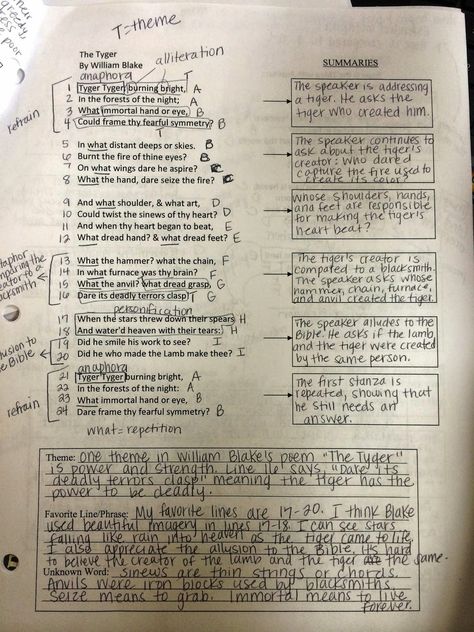 T=theme
The Tyger
By William Blake
alliteration
SUMMARIES
anaphora
T
refrain
1 Tyger Tyger, burning bright, A
2 In the forests of the night; A
3 What immortal hand or eye, B
4 Could frame thy fearful symmetry? B
T
The speaker is addressing
a tiger. He asks the
tiger who created him.
5 In what distant deeps or skies. B
6 Burnt the fire of thine eyes? B
7 On what wings dare he aspire? C
8 What the hand, dare seize the fire? C
The speaker continues to
ask about the tiger's
creator: who dared
capture the fire used to
create its color?
9 And what shoulder, & what art, D
10 Could twist the sinews of thy heart? D
11 And when thy heart began to beat, E
12 What dread hand? & what dread feet? E
Whose shoulders, hands,
and feet are responsible
for making the tiger's
heart beat?
13 What the hammer? what the chain, F
14 In what furnace was thy brain? F
15 What the anvil? what dread grasp, G
16 Dare its deadly terrors clasp! T G
comparing the
creator to a
blacksmith
The tiger's creator is
compared to a blacksmith.
The speaker asks whose
hammer, chain, furnace,
and anvil created the tiger.
personification
17 When the stars threw down their spears H
18 And water'd heaven with their tears: H
19 Did he smile his work to see? I
20 Did he who made the Lamb make thee? I
allusion to
the Bible
The speaker alludes to the
Bible. He asks if the lamb
and the tiger were created
by the same person.
anaphora
21 Tyger Tyger burning bright, A
22 In the forests of the night: A
23 What immortal hand or eye, B
24 Dare frame thy fearful symmetry? B
refrain
The first stanza is
repeated, showing that
he still needs an
answer.
what = repetition
Theme: One theme in William Blake's poem "The Tyger"
is power and strength. Line 16 says, "Dare its
deadly terrors clasp" meaning the tiger has the
power to be deadly.
Favorite Line/Phrase: My favorite lines are 17-20. I think Blake
used beautiful imagery in lines 17-18. I can see stars
falling like rain into heaven as the tiger came to life.
I also appreciate the allusion to the Bible. It's hard
to believe the creator of the lamb and the tiger are the same.
Unknown Word: sinews are thin strings or chords.
Anvils were iron blocks used by blacksmiths.
Seize means to grab. Immortal means to live
forever.